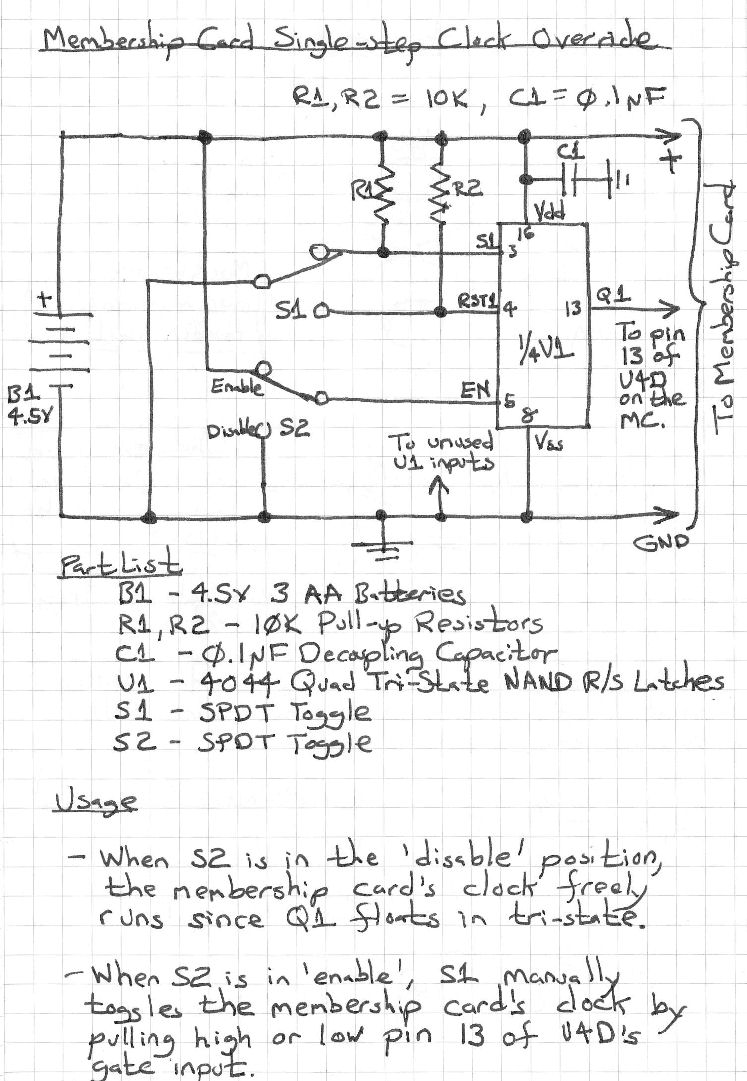 Membership Card Single-step Clock Override
R1, R2 = 10K, C1 = 0.1µF
C1
+
R1
R2
Vdd
16
S1
3
+
S1
RST1
4
13
Q1
1/4 U1
To pin
13 of
U4D
on the
MC.
To Membership Card
B1
4.5V
Enable
EN
5
Disable
S2
8
Vss
To unused
U1 inputs
GND
Part List
B1 - 4.5V 3 AA Batteries
R1, R2 - 10K Pull-up Resistors
C1 - 0.1µF Decoupling Capacitor
U1 - 4044 Quad Tri-State NAND R/S Latches
S1 - SPDT Toggle
S2 - SPDT Toggle
Usage
- When S2 is in the 'disable' position,
the membership card's clock freely
runs since Q1 floats in tri-state.
- When S2 is in 'enable', S1 manually
toggles the membership card's clock by
pulling high or low pin 13 of U4D's
gate input.